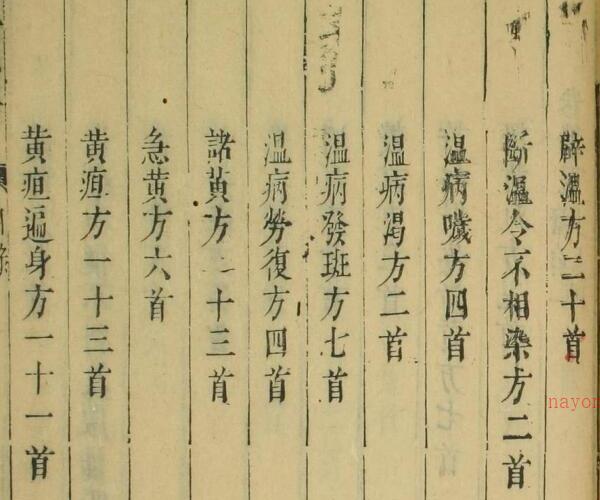 辟溫方二十首
斷溫令不相染方二首
温病噦方四首
温病渴方二首
温病發斑方七首
温病勞復方四首
諸黃方 十三首
急黃方六首
黄疸方一十三首
黄疸遍身方一十一首
nayon